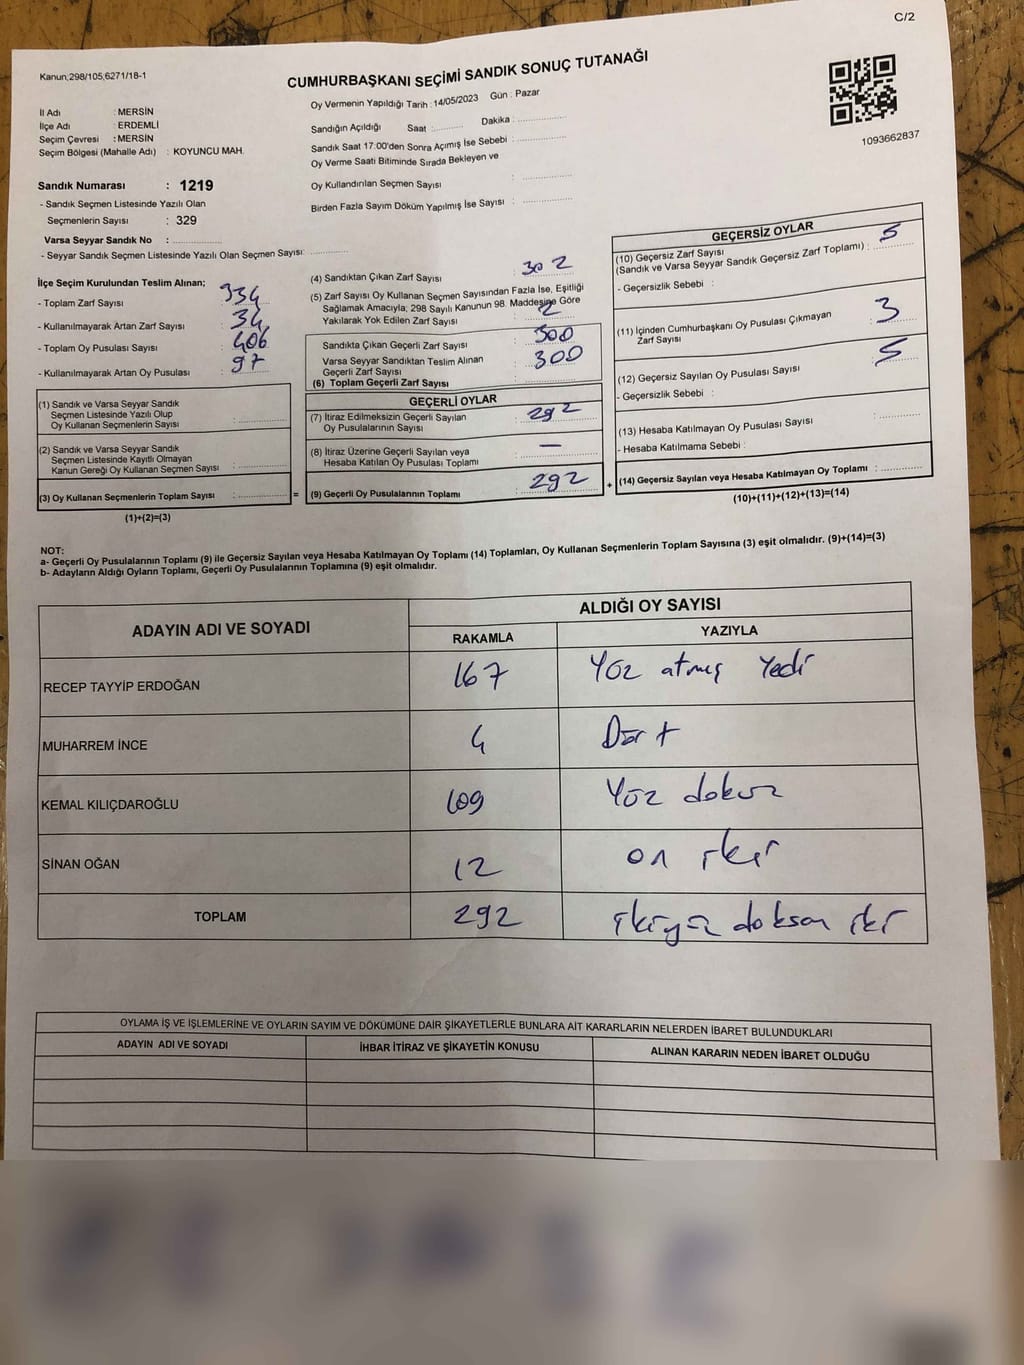 C/2
Kanun;298/105;6271/18-1
CUMHURBAŞKANI SEÇİMİ SANDIK SONUÇ TUTANAĞI
Oy Vermenin Yapıldığı Tarih : 14/05/2023 Gün : Pazar
1093662837
İl Adı : MERSİN
İlçe Adı : ERDEMLİ
Seçim Çevresi : MERSİN
Seçim Bölgesi (Mahalle Adı) : KOYUNCU MAH.
Sandığın Açıldığı Saat : Dakika :
Sandık Saat 17:00'den Sonra Açımış İse Sebebi :
Oy Verme Saati Bitiminde Sırada Bekleyen ve
Oy Kullandırılan Seçmen Sayısı :
Birden Fazla Sayım Döküm Yapılmış İse Sayısı :
Sandık Numarası : 1219
- Sandık Seçmen Listesinde Yazılı Olan
Seçmenlerin Sayısı : 329
Varsa Seyyar Sandık No :
- Seyyar Sandık Seçmen Listesinde Yazılı Olan Seçmen Sayısı:
İlçe Seçim Kurulundan Teslim Alınan;
- Toplam Zarf Sayısı : 334
- Kullanılmayarak Artan Zarf Sayısı : 34
- Toplam Oy Pusulası Sayısı : 406
- Kullanılmayarak Artan Oy Pusulası : 97
(1) Sandık ve Varsa Seyyar Sandık
Seçmen Listesinde Yazılı Olup
Oy Kullanan Seçmenlerin Sayısı :
(2) Sandık ve Varsa Seyyar Sandık
Seçmen Listesinde Kayıtlı Olmayan
Kanun Gereği Oy Kullanan Seçmen Sayısı :
(3) Oy Kullanan Seçmenlerin Toplam Sayısı : =
(1)+(2)=(3)
(4) Sandıktan Çıkan Zarf Sayısı : 302
(5) Zarf Sayısı Oy Kullanan Seçmen Sayısından Fazla İse, Eşitliği
Sağlamak Amacıyla; 298 Sayılı Kanunun 98. Maddesine Göre
Yakılarak Yok Edilen Zarf Sayısı : 2
Sandıkta Çıkan Geçerli Zarf Sayısı : 300
Varsa Seyyar Sandıktan Teslim Alınan
Geçerli Zarf Sayısı : 300
(6) Toplam Geçerli Zarf Sayısı :
GEÇERLİ OYLAR
(7) İtiraz Edilmeksizin Geçerli Sayılan
Oy Pusulalarının Sayısı : 292
(8) İtiraz Üzerine Geçerli Sayılan veya
Hesaba Katılan Oy Pusulası Toplamı : —
(9) Geçerli Oy Pusulalarının Toplamı : 292 +
GEÇERSİZ OYLAR
(10) Geçersiz Zarf Sayısı
(Sandık ve Varsa Seyyar Sandık Geçersiz Zarf Toplamı) : 5
- Geçersizlik Sebebi :
(11) İçinden Cumhurbaşkanı Oy Pusulası Çıkmayan
Zarf Sayısı : 3
(12) Geçersiz Sayılan Oy Pusulası Sayısı : 5
- Geçersizlik Sebebi :
(13) Hesaba Katılmayan Oy Pusulası Sayısı :
- Hesaba Katılmama Sebebi :
(14) Geçersiz Sayılan veya Hesaba Katılmayan Oy Toplamı :
(10)+(11)+(12)+(13)=(14)
NOT:
a- Geçerli Oy Pusulalarının Toplamı (9) ile Geçersiz Sayılan veya Hesaba Katılmayan Oy Toplamı (14) Toplamları, Oy Kullanan Seçmenlerin Toplam Sayısına (3) eşit olmalıdır. (9)+(14)=(3)
b- Adayların Aldığı Oyların Toplamı, Geçerli Oy Pusulalarının Toplamına (9) eşit olmalıdır.
ADAYIN ADI VE SOYADI ALDIĞI OY SAYISI
RAKAMLA YAZIYLA
RECEP TAYYİP ERDOĞAN 167 Yüz atmış Yedi
MUHARREM İNCE 4 Dört
KEMAL KILIÇDAROĞLU 109 Yüz dokuz
SİNAN OĞAN 12 on iki
TOPLAM 292 ikiyüz doksan iki
OYLAMA İŞ VE İŞLEMLERİNE VE OYLARIN SAYIM VE DÖKÜMÜNE DAİR ŞİKAYETLERLE BUNLARA AİT KARARLARIN NELERDEN İBARET BULUNDUKLARI
ADAYIN ADI VE SOYADI İHBAR İTİRAZ VE ŞİKAYETİN KONUSU ALINAN KARARIN NEDEN İBARET OLDUĞU